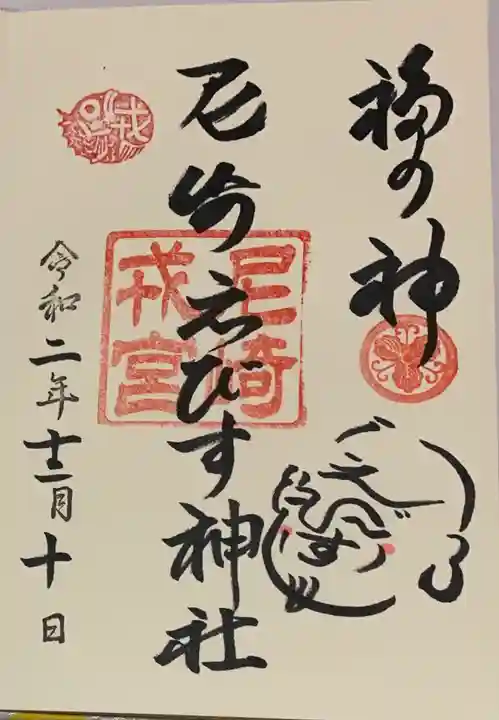 福の神
尼崎えびす神社
尼崎
戎宮
戎
令和二年十二月十日